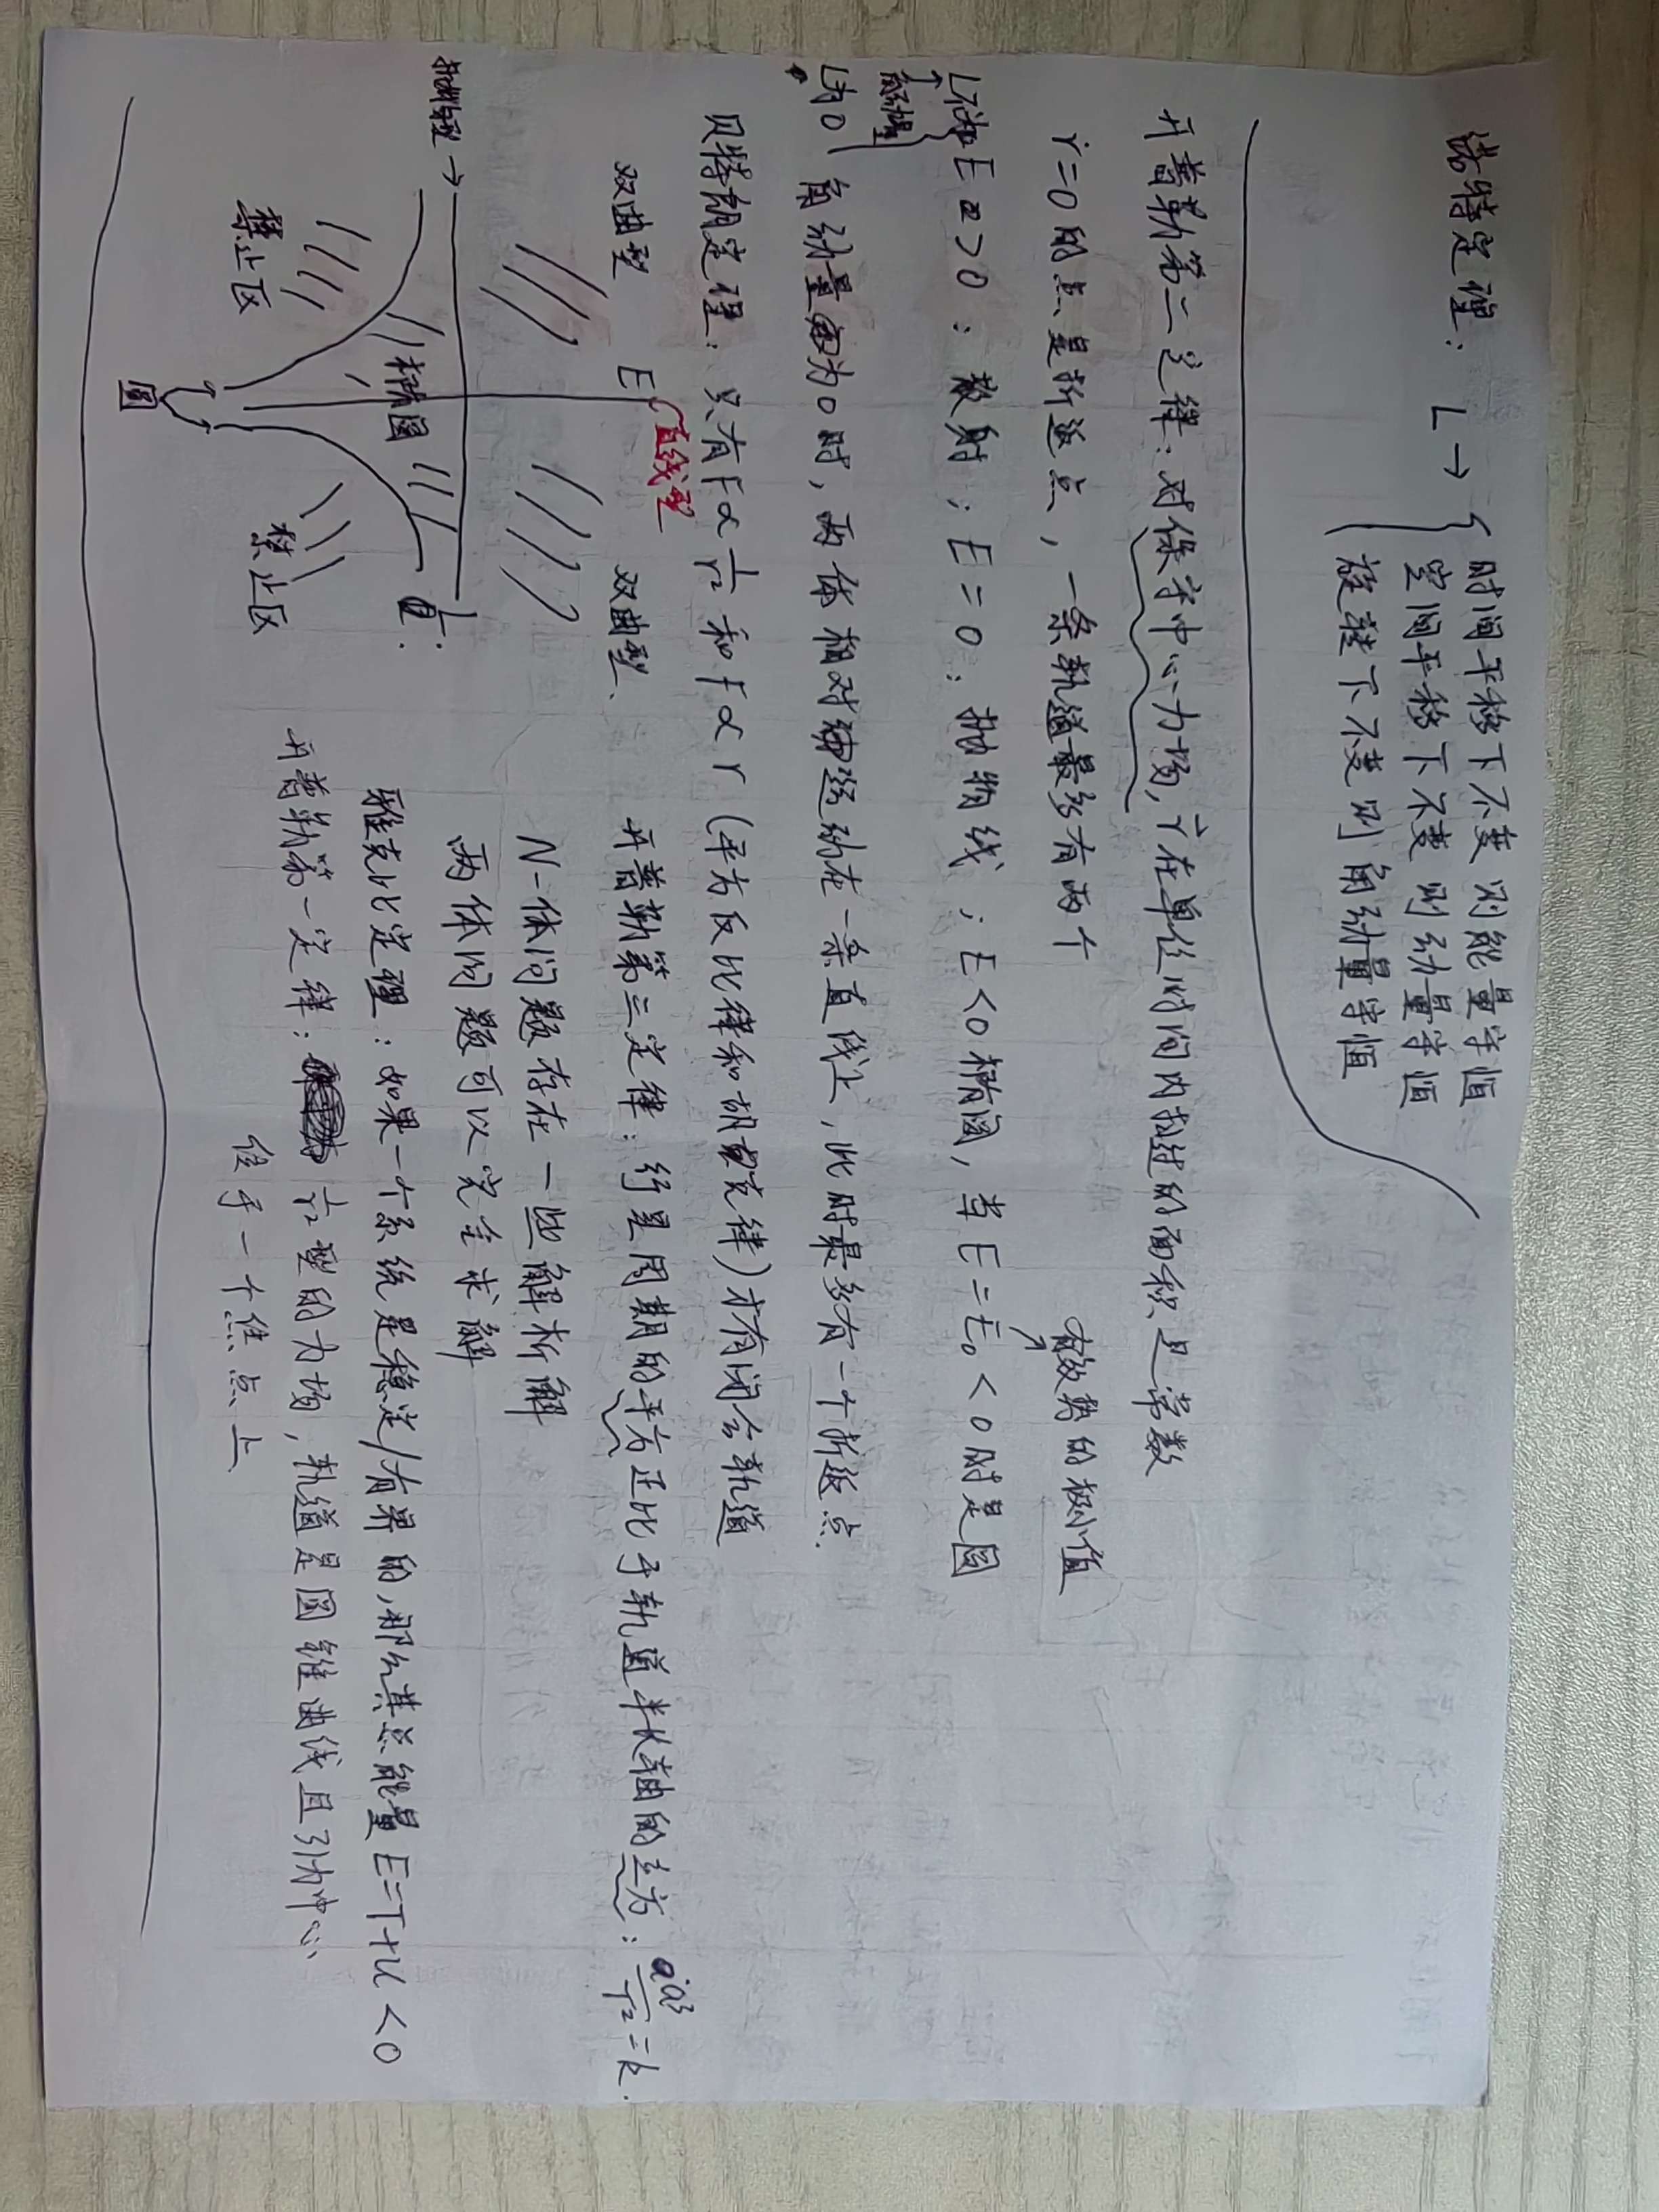 诺特定理： L → { 时间平移下不变 则能量守恒
空间平移下不变 则动量守恒
旋转下不变 则角动量守恒
开普勒第二定律：对保守中心力场，r⃗在单位时间内扫过的面积是常数
ṙ=0的点是折返点，一条轨道最多有两个
有效势的极小值
L不为0 E>0：散射；E=0：抛物线；E<0椭圆，当E=E₀<0时是圆
角动量
L为0 角动量为0时，两体相对运动在一条直线上，此时最多有一个折返点
贝特朗定理：只有F∝1/r²和F∝r（平方反比律和胡克律）才有闭合轨道
双曲型 E 直线型 双曲型
抛物型→
椭圆
禁止区 禁止区
圆
1/L：
开普勒第三定律：行星周期的平方正比于轨道半长轴的立方：a³/T²=k.
N-体问题存在一些解析解
两体问题可以完全求解
雅克比定理：如果一个系统是稳定/有界的，那么其总能量E=T+U<0
开普勒第一定律：1/r²型的力场，轨道是圆锥曲线且引力中心
位于一个焦点上